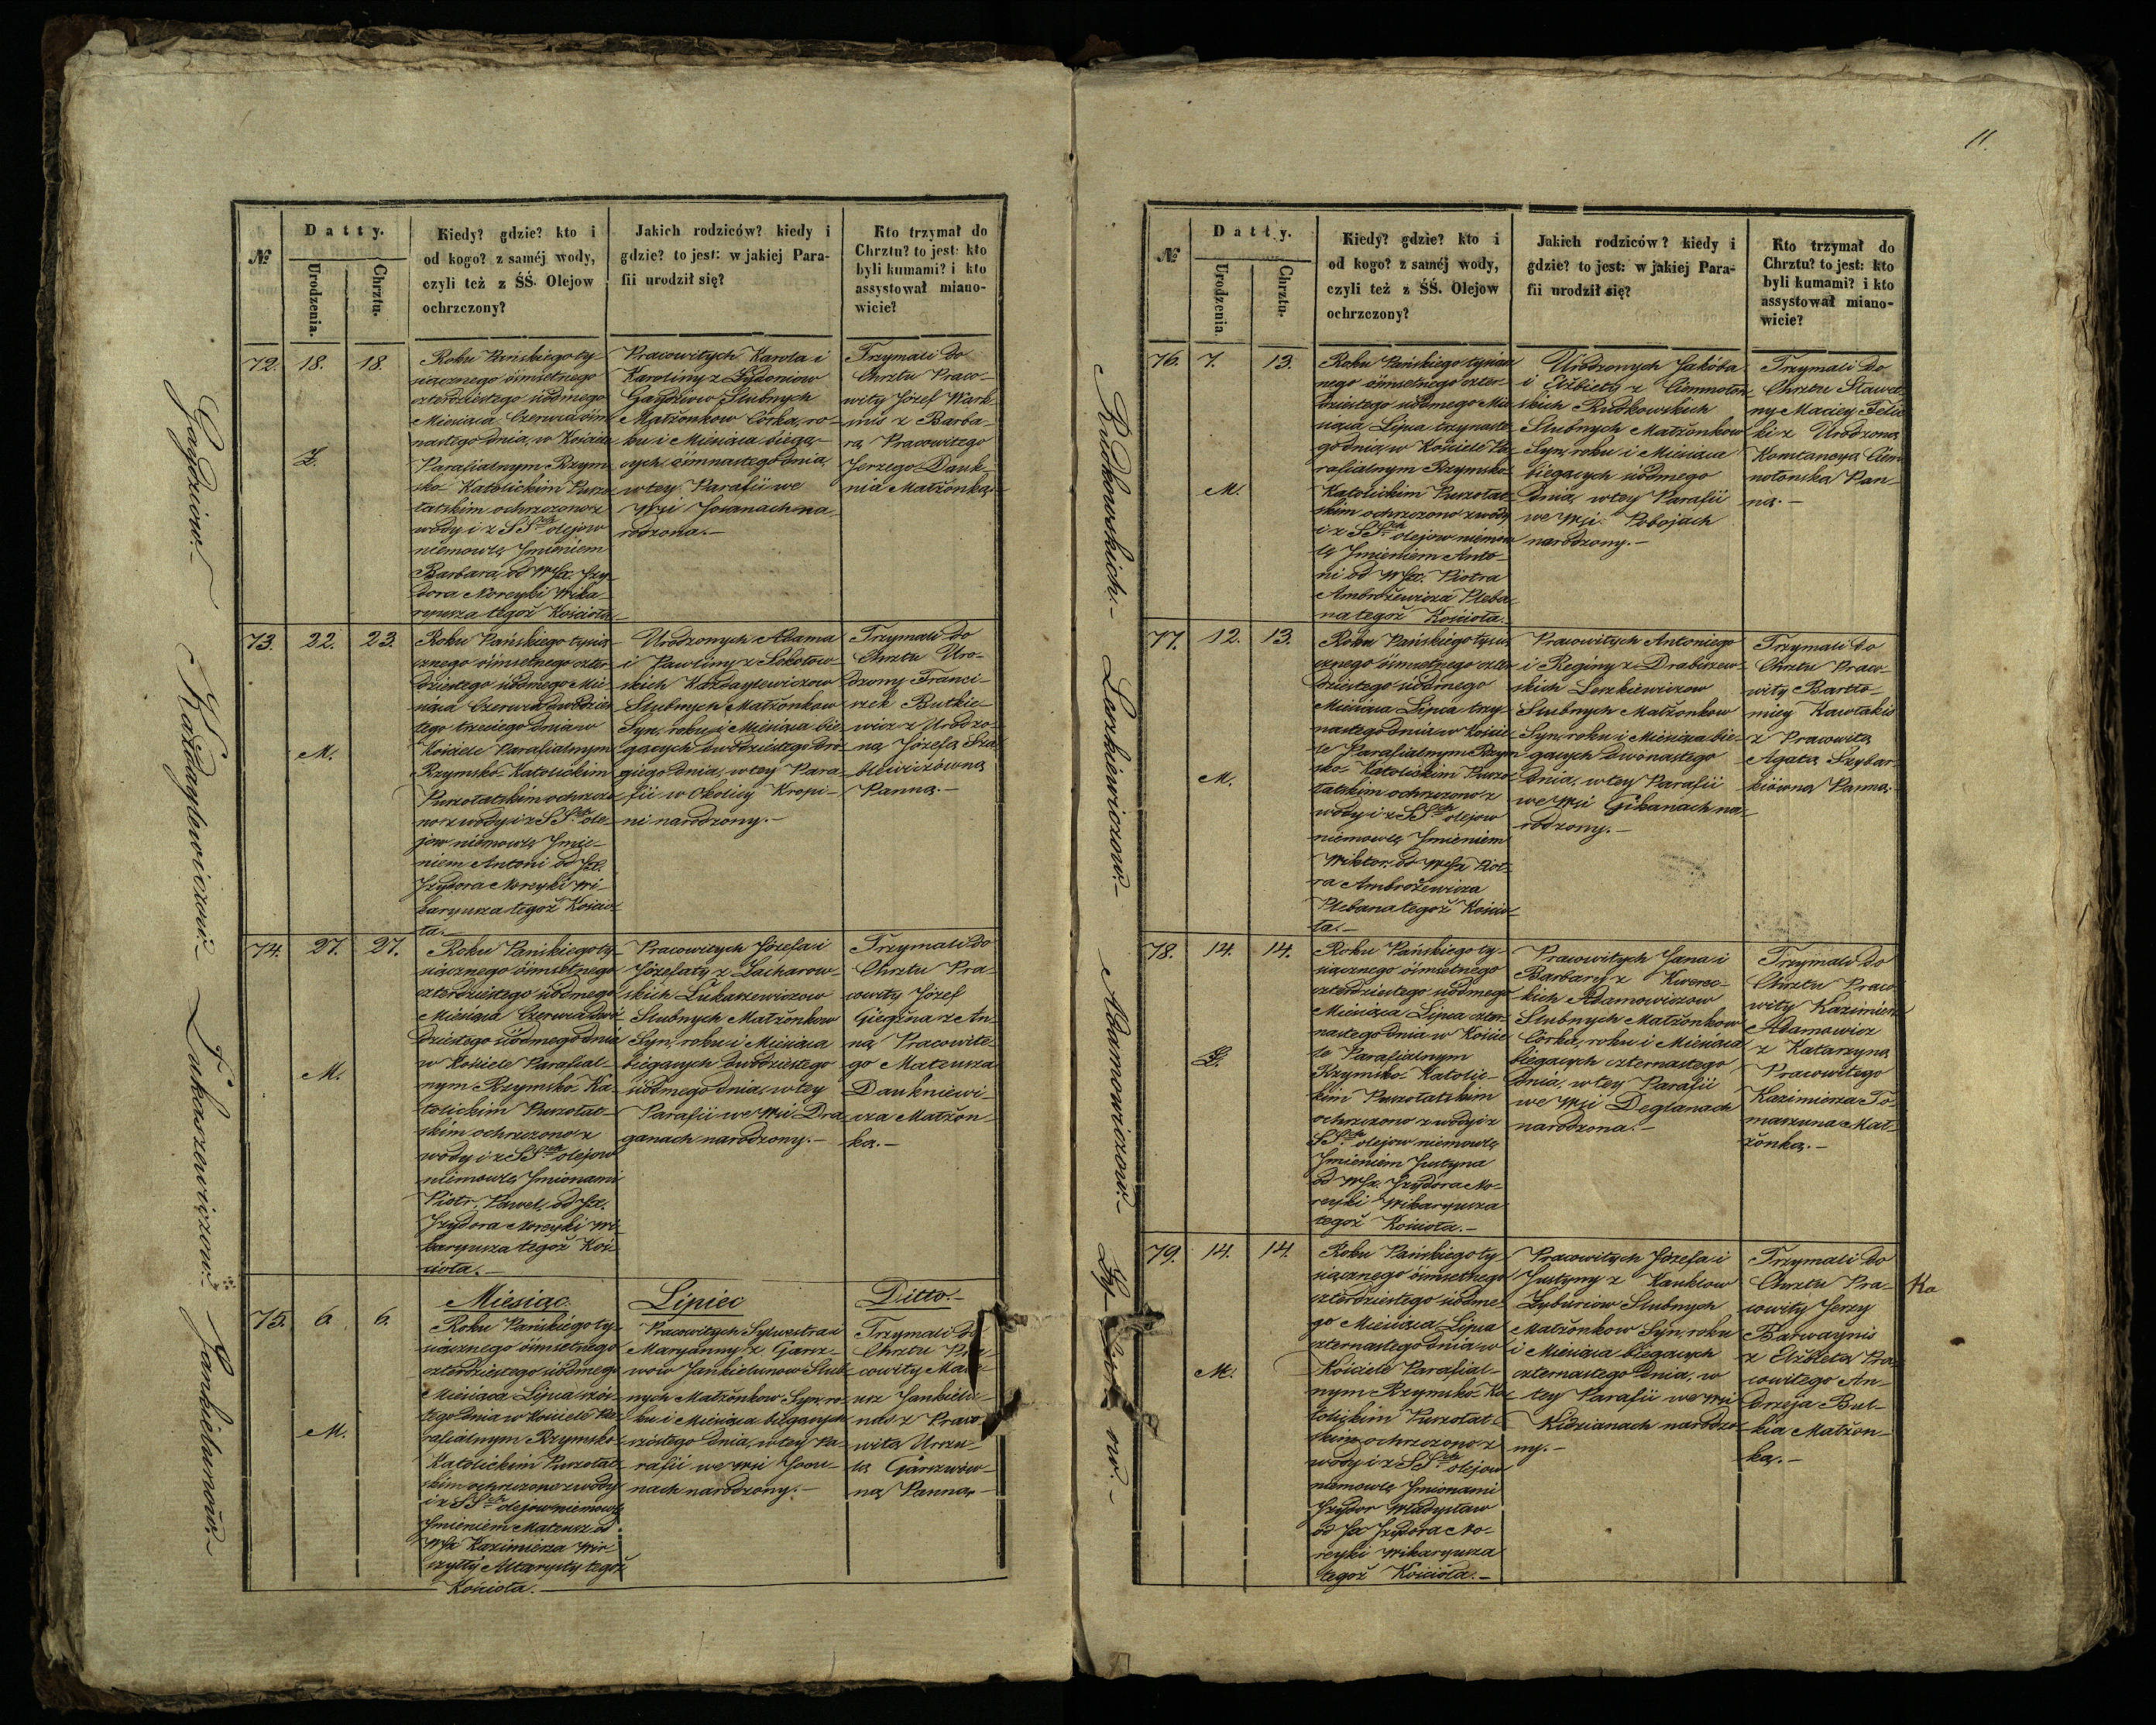 11.
№
Datty.
Urodzenia.
Chrztu.
Kiedy? gdzie? kto i
od kogo? z saméj wody,
czyli też z ŚŚ. Olejow
ochrzczony?
Jakich rodziców? kiedy i
gdzie? to jest: w jakiej Para-
fii urodził się?
Kto trzymał do
Chrztu? to jest: kto
byli kumami? i kto
assystował miano-
wicie?
72. 18. 18.
Ż.
Roku Pańskiego ty-
siącznego ósmsetnego
czterdziestego siódmego
Miesiąca Czerwca ósm
nastego dnia, w Kościele
Parafialnym Rzym-
sko-Katolickim Purzo
łatskim ochrzczono z
wody i z SS.ch olejow
niemowlę Jmieniem
Barbara, od WJX. Jzy-
dora Noreyki Wika-
ryusza tegoż Kościoła
Pracowitych Karola i
Karoliny z Żydoniow
Gaydziow Slubnych
Małżonkow Córka, ro-
ku i Miesiąca bieżą-
cych, ósmnastego dnia,
w tey Parafii we
Wsi Josanach na-
rodzona.-
Trzymali do
Chrztu Praco-
wity Józef
z Barba-
rą Pracowitego
Jerzego Dauk-
nia Małżonką
Gaydziow.-
73. 22. 23.
M.
Roku Pańskiego tysią-
cznego ósmsetnego czter-
dziestego siódmego Mie-
siąca Czerwca dwódzies
tego trzeciego dnia w
Kościele Parafialnym
Rzymsko-Katolickim
Purzołatskim ochrzczo
no z wody i z SS.ch ole-
jow niemowlę Jmie-
niem Antoni od JX.
Jzydora Noreyki Wi-
karyusza tegoż Kościo
ła.-
Urodzonych Adama
i Pawliny z Sokołow-
skich Każdaylewiczow
Slubnych Małżonkow
Syn, roku i Miesiąca bie-
gących dwódziestego dru-
giego dnia, w tey Para
fii w Okolicy Kropi-
ni narodzony.-
Trzymali do
Chrztu Uro-
dzony Franci-
szek Butkie-
wicz z Urodzo-
ną Józefą Sza-
blewiczówną
Panną.-
Każdaylewiczow.-
74. 27. 27.
M.
Roku Pańskiego ty-
siącznego ósmsetnego
czterdziestego siódmego
Miesiąca Czerwca dwó-
dziestego siódmego dnia
w Kościele Parafial-
nym Rzymsko-Ka-
tolickim Purzołat-
skim ochrzczono z
wody i z SS.ch olejow
niemowlę Jmionami
Piotr, Paweł, od JX.
Jzydora Noreyki Wi-
karyusza tegoż Koś-
cioła.-
Pracowitych Józefa i
Józefaty z Zacharow-
skich Łukaszewiczow
Slubnych Małżonkow
Syn, roku i Miesiąca
bieżących dwódziestego
siódmego dnia, w tey
Parafii we Wsi Dra
ganach narodzony.-
Trzymali do
Chrztu Pra-
cowity Józef
Giegżna z An-
ną Pracowite-
go Mateusza
Daukniewi-
cza Małżon-
ką.-
Łukaszewiczow.-
Miesiąc Lipiec Ditto.-
75. 6. 6.
M.
Roku Pańskiego ty-
siącznego ósmsetnego
czterdziestego siódmego
Miesiąca Lipca szós-
tego dnia w Kościele Pa-
rafialnym Rzymsko-
Katolickim Purzołat-
skim ochrzczono z wody
i z SS.ch olejow niemowlę
Jmieniem Mateusz od
WJX Kazimierza
Altarysty tegoż
Kościoła.-
Pracowitych Sylwestra i
Maryanny z Garsz-
wow Jankielunow Slub
nych Małżonkow Syn, ro-
ku i Miesiąca bieżących
szóstego dnia, w tey Pa-
rafii we Wsi Josu-
nach narodzony.-
Trzymali do
Chrztu Pra-
cowity Mate-
usz Jankielu-
nas z Praco
witą Urszu-
lą Garszwów-
ną Panną.-
Jankielunow.-
76. 7. 13.
M.
Roku Pańskiego tysiącz
nego ósmsetnego czter-
dziestego siódmego Mie
siąca Lipca trzynaste
go dnia, w Kościele Pa-
rafialnym Rzymsko-
Katolickim Purzołat-
skim ochrzczono z wody
i z SS.ch olejow niemow
lę Jmieniem Anto-
ni od WJX. Piotra
Ambrożewicza Pleba-
na tegoż Kościoła.
Urodzonych Jakóba
i Elżbiety z Ciemnołoń-
skich Rudkowskich
Slubnych Małżonkow
Syn, roku i Miesiąca
bieżących siódmego
dnia, w tey Parafii
we Wsi Pobojach
narodzony.-
Trzymali do
Chrztu Sławet
ny Maciey Felic
ki z Urodzoną
Konstancyą Ciem
nołońska Pan-
ną.-
Rudkowskich.-
77. 12. 13.
M.
Roku Pańskiego tysią-
cznego ósmsetnego czter
dziestego siódmego
Miesiąca Lipca trzy-
nastego dnia w Koście
le Parafialnym Rzym-
sko-Katolickim Purzo
łatskim ochrzczono z
wody i z SS.ch olejow
niemowlę Jmieniem
Wiktor od WJX Piot-
ra Ambrożewicza
Plebana tegoż Kościo
ła.-
Pracowitych Antoniego
i Reginy z Drabszew-
skich Leszkiewiczow
Slubnych Małżonkow
Syn, roku i Miesiąca bie-
gących dwónastego
dnia, w tey Parafii
we Wsi Gikanach na-
rodzony.-
Trzymali do
Chrztu Praco-
wity Bartło-
miey Kawłakis
z Pracowitą
Agatą Szybar-
kiówną Panną.
Leszkiewiczow.-
78. 14. 14.
Ż.
Roku Pańskiego ty-
siącznego ósmsetnego
czterdziestego siódmego
Miesiąca Lipca czter-
nastego dnia w Koście
le Parafialnym
Rzymsko-Katolic-
kim Purzołatskim
ochrzczono z wody i z
SS.ch olejow niemowlę
Jmieniem Justyna
od WJX. Jzydora No-
reyki Wikaryusza
tegoż Kościoła.-
Pracowitych Jana i
Barbary z Kwerec-
kich Adamowiczow
Slubnych Małżonkow
Córka, roku i Miesiąca
bieżących czternastego
dnia, w tey Parafii
we Wsi Deglanach
narodzona.-
Trzymali do
Chrztu Praco
wity Kazimierz
Adamowicz
z Katarzyną
Pracowitego
Kazimierza To-
maszuna Mał-
żonką.-
Adamowiczow.-
79. 14. 14.
M.
Roku Pańskiego ty-
siącznego ósmsetnego
czterdziestego siódme-
go Miesiąca Lipca
czternastego dnia w
Kościele Parafial-
nym Rzymsko-Ka
tolickim Purzołat-
skim ochrzczono z
wody i z SS.ch olejow
niemowlę Jmionami
Jzydor Władysław
od JX Jzydora No-
reyki Wikaryusza
tegoż Kościoła.-
Pracowitych Józefa i
Justyny z Kauklow
Żyburiow Slubnych
Małżonkow Syn, roku
i Miesiąca bieżących
czternastego dnia, w
tey Parafii we Wsi
Kidzianach narodzo
ny.-
Trzymali do
Chrztu Pra-
cowity Jerzy
Barwaynis
z Elżbietą Pra
cowitego An-
drzeja But-
kia Małżon-
ką.-
Ka